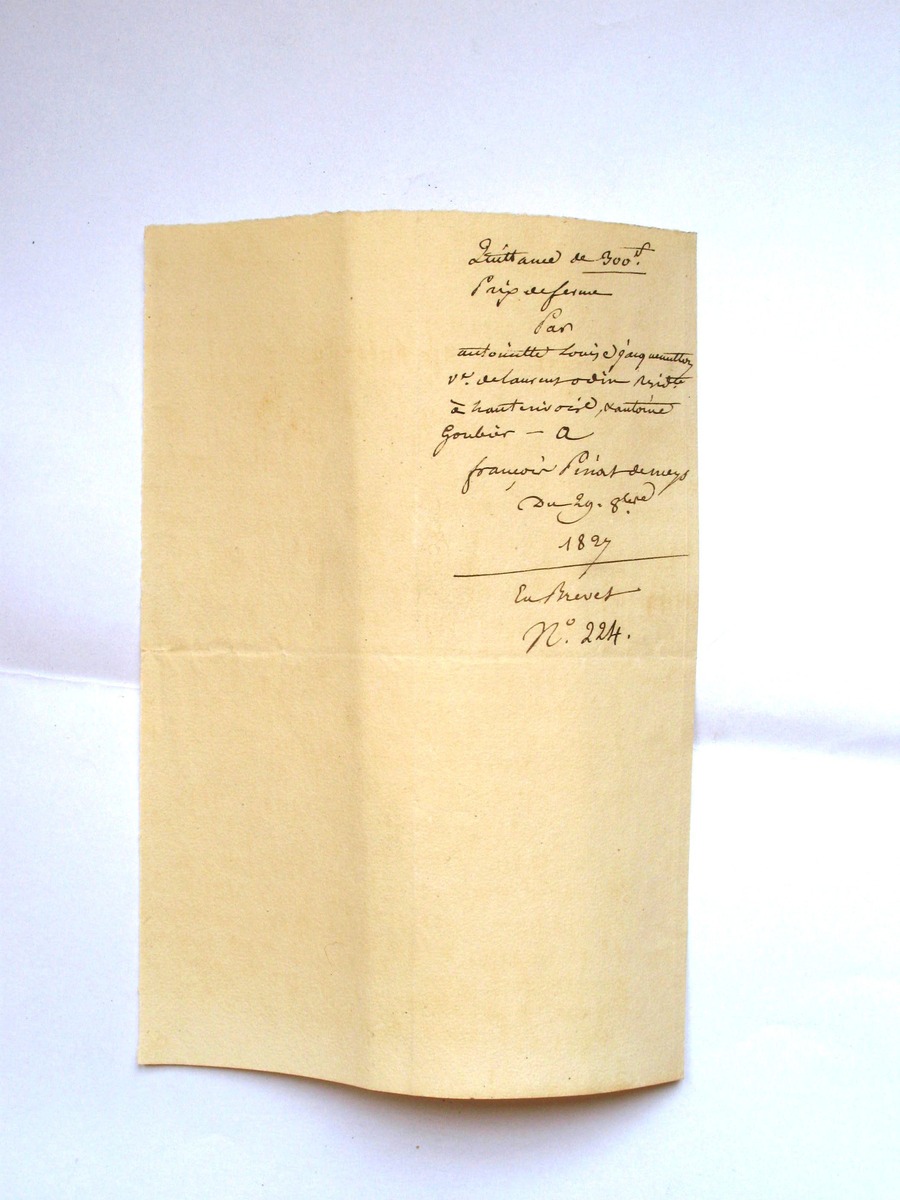 Quittance de 300 f.
Prix de ferme
Par
antoinette Louise jacquemetton
Ve. de laurent odin Residte
à hauterivoire, & antoine
Goubier — A
françois Pinat de meys
Du 29. 8bre
1827
En Brevet
N°. 224.